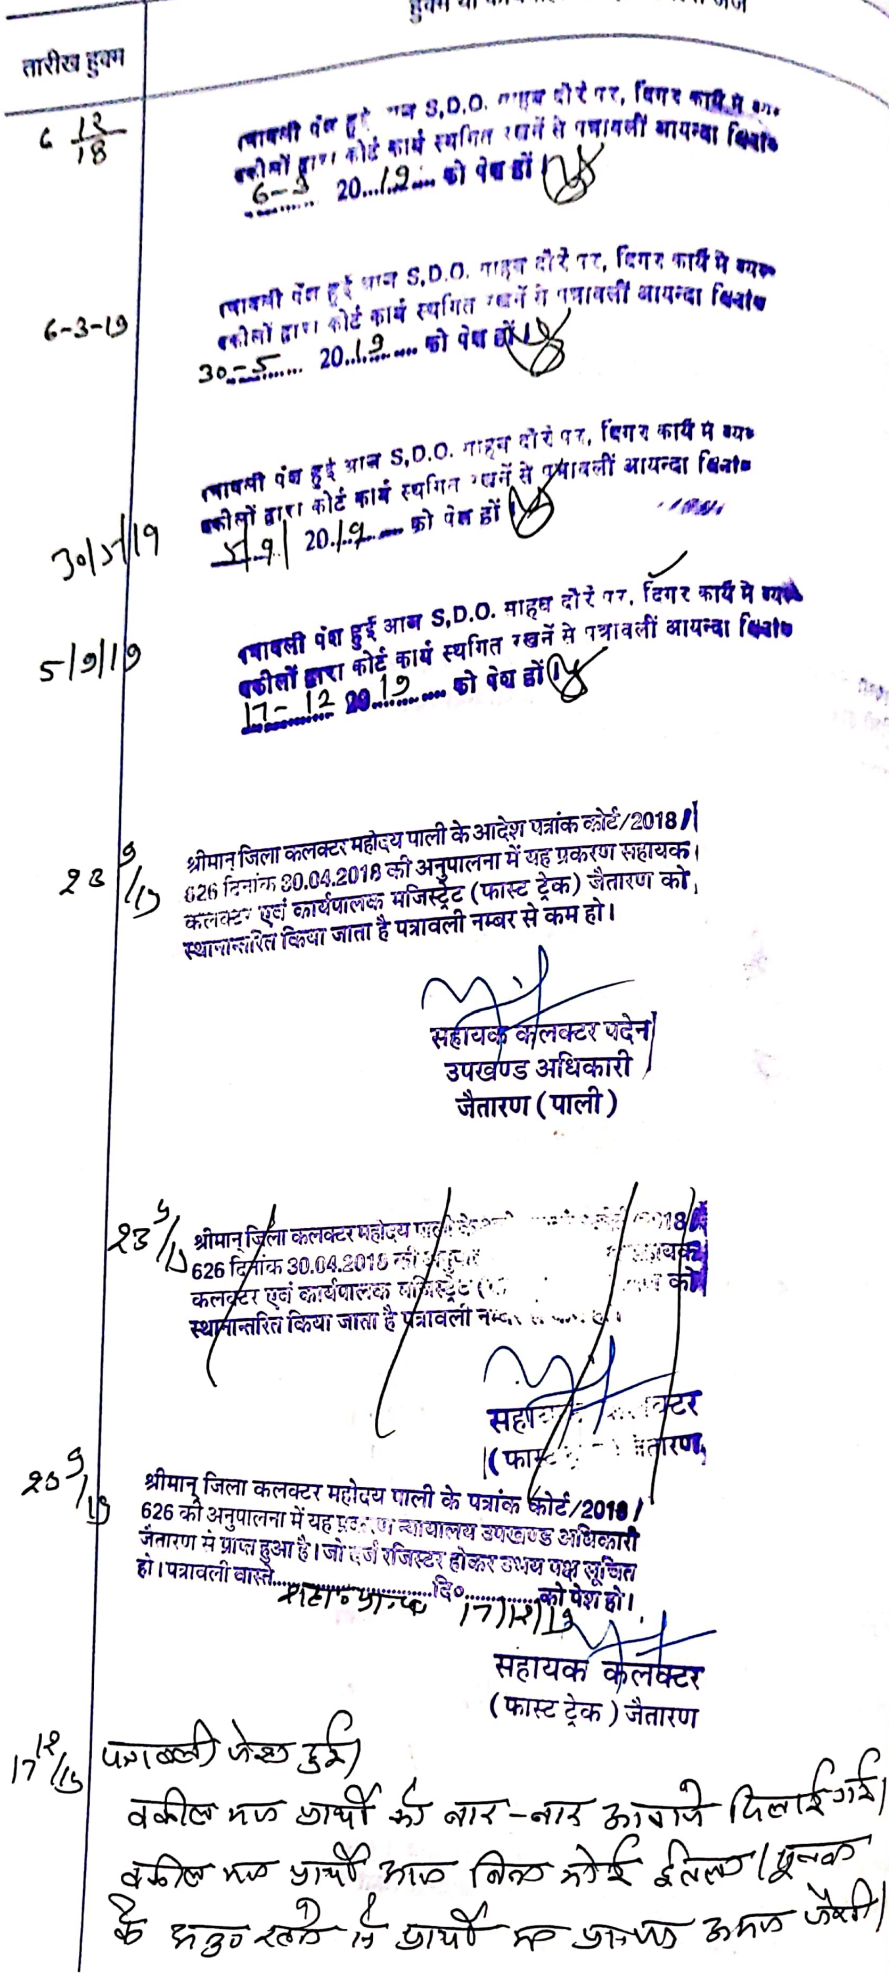 तारीख हुक्म
6 12/18
पत्रावली पेश हुई आज S.D.O. साहब दौरे पर, दिगर कार्य में व्यस्त
वकीलों द्वारा कोर्ट कार्य स्थगित रखनें से पत्रावलीं आयन्दा दिनांक
6-3 2019 को पेश हों।
6-3-19
पत्रावली पेश हुई आज S.D.O. साहब दौरे पर, दिगर कार्य में व्यस्त
वकीलों द्वारा कोर्ट कार्य स्थगित रखनें से पत्रावलीं आयन्दा दिनांक
30-5 2019 को पेश हों।
30/5/19
पत्रावली पेश हुई आज S.D.O. साहब दौरे पर, दिगर कार्य में व्यस्त
वकीलों द्वारा कोर्ट कार्य स्थगित रखनें से पत्रावलीं आयन्दा दिनांक
5/9/ 2019 को पेश हों
5/9/19
पत्रावली पेश हुई आज S.D.O. साहब दौरे पर, दिगर कार्य में व्यस्त
वकीलों द्वारा कोर्ट कार्य स्थगित रखनें से पत्रावलीं आयन्दा दिनांक
17-12 2019 को पेश हों।
23 9/19
श्रीमान् जिला कलक्टर महोदय पाली के आदेश पत्रांक कोर्ट/2018/
626 दिनांक 30.04.2018 की अनुपालना में यह प्रकरण सहायक
कलक्टर एवं कार्यपालक मजिस्ट्रेट (फास्ट ट्रेक) जैतारण को
स्थानान्तरित किया जाता है पत्रावली नम्बर से कम हो।
सहायक कलक्टर पदेन
उपखण्ड अधिकारी
जैतारण (पाली)
23 9/19
श्रीमान् जिला कलक्टर महोदय पाली के 2018/
626 दिनांक 30.04.2018 की सहायक
कलक्टर एवं कार्यपालक मजिस्ट्रेट ( को
स्थानान्तरित किया जाता है पत्रावली
सहायक कलक्टर
(फास्ट जैतारण
23 9/19
श्रीमान् जिला कलक्टर महोदय पाली के पत्रांक कोर्ट/2018/
626 की अनुपालना में यह प्रकरण न्यायालय उपखण्ड अधिकारी
जैतारण से प्राप्त हुआ है। जो दर्ज रजिस्टर होकर उभय पक्ष सूचित
हो। पत्रावली वास्ते....................दि०............को पेश हो।
17/12/19
सहायक कलक्टर
(फास्ट ट्रेक) जैतारण
17 12/19 पत्रावली पेश हुई।
वकील मय प्रार्थी को बार-बार आवाजे दिलाई गई।
वकील मय प्रार्थी बिना कोई
के प्रार्थी